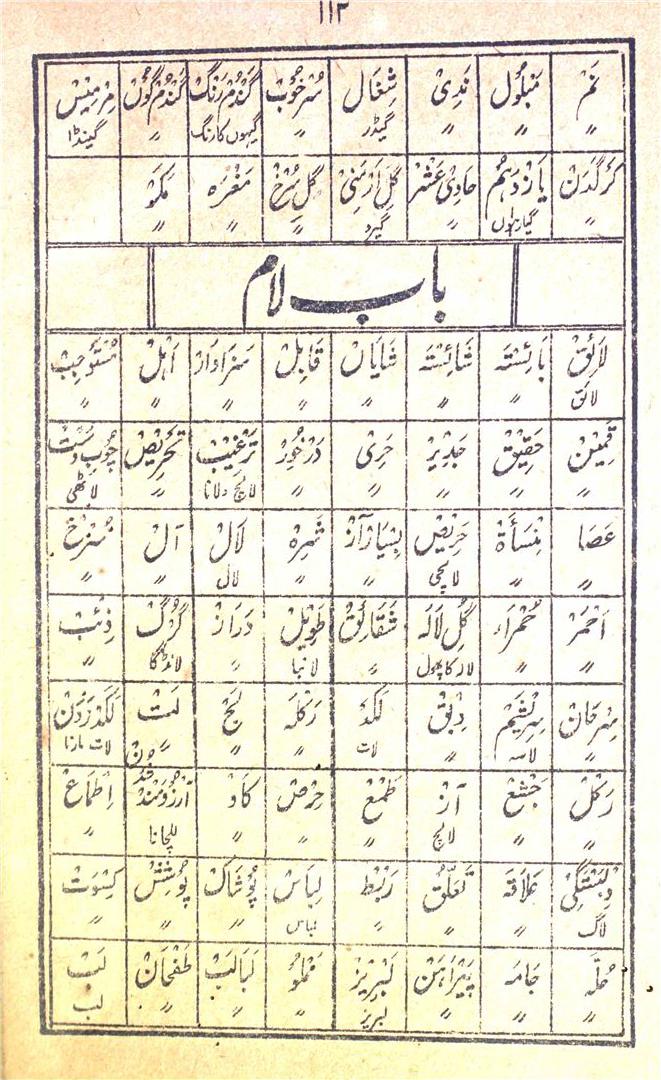 ۱۱۳
نَمْ مَبْلُول نَدِیْ شِغَال سُرْخُوْب گَنْدُمْ رَنْگ گَنْدُمْ گُوْں
〃 〃 〃 گیڈر 〃 گیہوں کا رنگ 〃 گینڈا
کَرْگَدَن یَازْدَہُمْ حَادِیْ عَشَر گِلِ اَرْمَنِیْ گِلِ سُرْخ مَغْرَہ
〃 گیارہواں 〃 گیرو 〃 〃 〃
باب لام
لَائِقْ بَائِسْتَہ شَائِسْتَہ شَایَاں قَابِلْ سَزَاوَار اَہْل مُسْتَوْجِبْ
لائق 〃 〃 〃 〃 〃 〃 〃
قَمِیْن حَقِیْق جَدِیْر حَرِی دَرْخُوْر تَرْغِیْب تَحْرِیْص چُوْبِ دَسْت
〃 〃 〃 〃 〃 لالچ دلانا 〃 لاٹھی
عَصَا مِنْسَأَۃ حَرِیْص بِسْیَارْ آز شَرِہ لَال آل سُرْخ
〃 〃 لالچی 〃 〃 لال 〃 〃
اَحْمَرْ حُمْرَاء گُلِ لَالَہ شَقَائِقْ طَوِیْل دَرَاز گُرْگ ذِئْب
〃 〃 لالہ کا پھول 〃 لانبا 〃 لانڈگا 〃
سِرْحَان سِرِیْشَم دِبْق لَکَدْ رَکْلَہ لَج لَتْ لَکَدْ زَدَن
〃 لاسہ 〃 لات 〃 〃 〃 لات مارنا
رَکْل جَشَعْ آز طَمَعْ حِرْص کَاو آرْزُوْمَنْد شُدَنْ اِطْمَاع
〃 〃 لالچ 〃 〃 〃 للچانا 〃
دِلْبَسْتَگِی عَلَاقَہ تَعَلُّق رَبْط لِبَاس پُوْشَاک پُوْشِشْ کِسْوَت
لاگ 〃 〃 〃 لباس 〃 〃 〃
حُلَّہ جَامَہ پَیْرَاہَن لَبْرِیْز مَمْلُوْ لَبَالَب طَفْحَان لَبْ
〃 〃 〃 لبریز 〃 〃 〃 لب